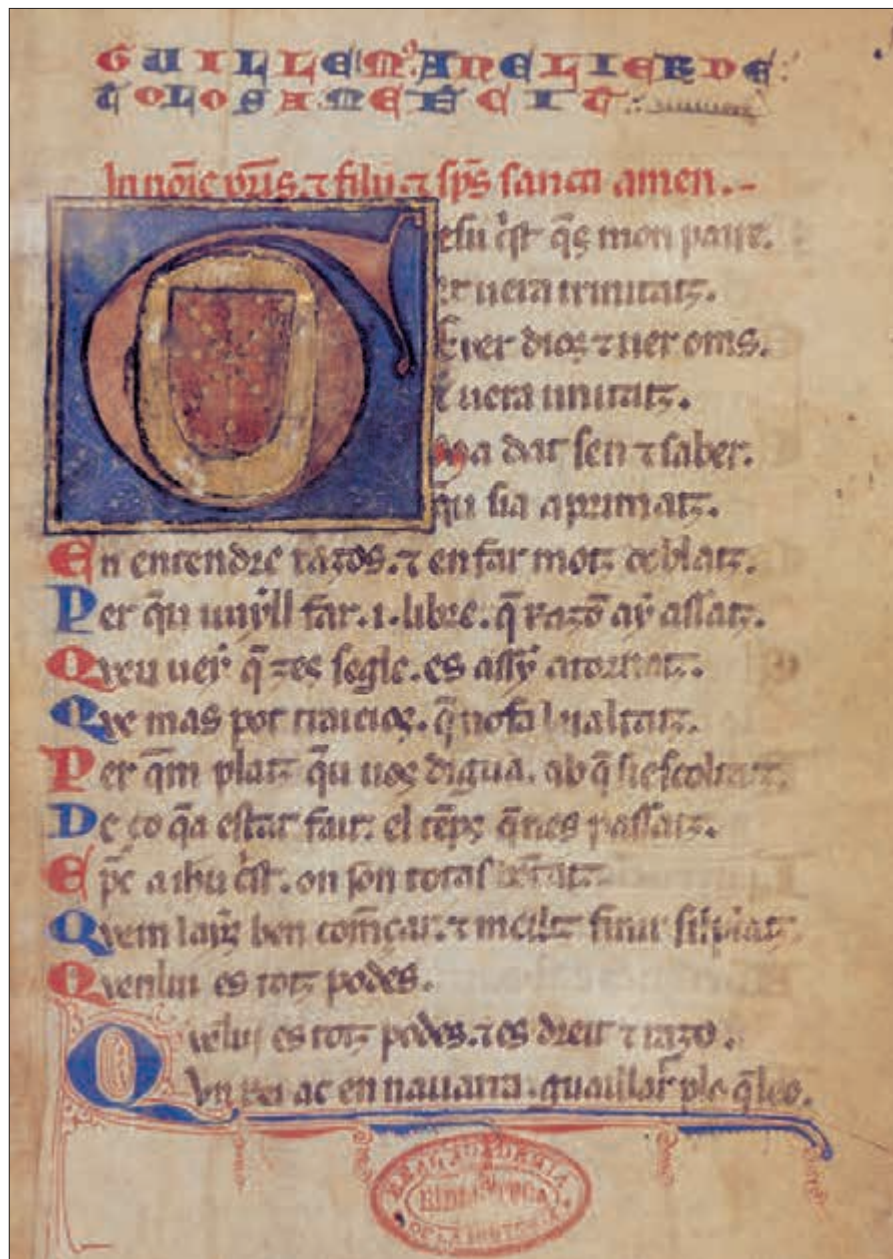 GUILLEM⁹. ANELIER DE:
TOLOSA. ME FECIT:.
In nōie pr̄is. ⁊ filii ⁊ sp̄s sancti amen.-
esu c̄st q̄s mon paire.
et uera trinitatz.
E ver dios ⁊ uer oms.
E uera unitatz.
a dat sen ⁊ saber.
q̄u sia aprimatz.
En entendre razos. ⁊ en far motz doblatz.
Per q̄u uuyll far .i. libre. q̄ razō aỹ assatz.
Qveu uey q̄ segle. es assy atornatz.
Qve mas pot traicios. q̄ no fa lualtatz.
Per q̄m platz q̄u uos digua. ab q̄ siescoltatz.
De ço q̄a estat fait. el tēps q̄nes passatz.
E ihu c̄st. on son totas
Qvem lays ben com̄çar. ⁊ meiltz finir silplatz.
Qvenlui es totz podes.
Qvelui es totz podes. ⁊ es dreit ⁊ razo.
Vn rei ac en nauarra. guaillart ple q̄leo.
REAL ACADEMIA
BIBLIOTECA
DE LA HISTORIA